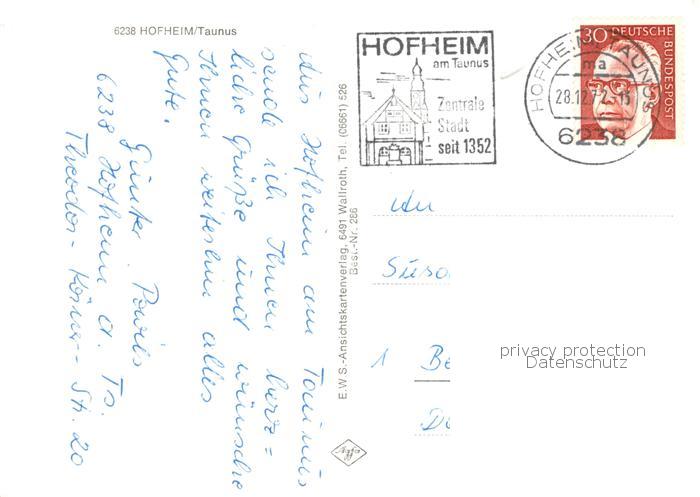 6238 HOFHEIM/Taunus
Aus Hofheim am Taunus
sende ich Ihnen herz=
liche Grüße und wünsche
Ihnen weiterhin alles
Gute.
Günter
6238 Hofheim a. Ts.
Theodor-Körner-Str. 20
E.W.S.-Ansichtskartenverlag, 6491 Wallroth, Tel. (06661) 526
Best.-Nr. 286
Agfa
HOFHEIM
am Taunus
Zentrale
Stadt
seit 1352
HOFHEIM TAUNUS
ma
28.12.7
6238
30 DEUTSCHE
BUNDESPOST
An
Susa
1 Be
privacy protection
Datenschutz